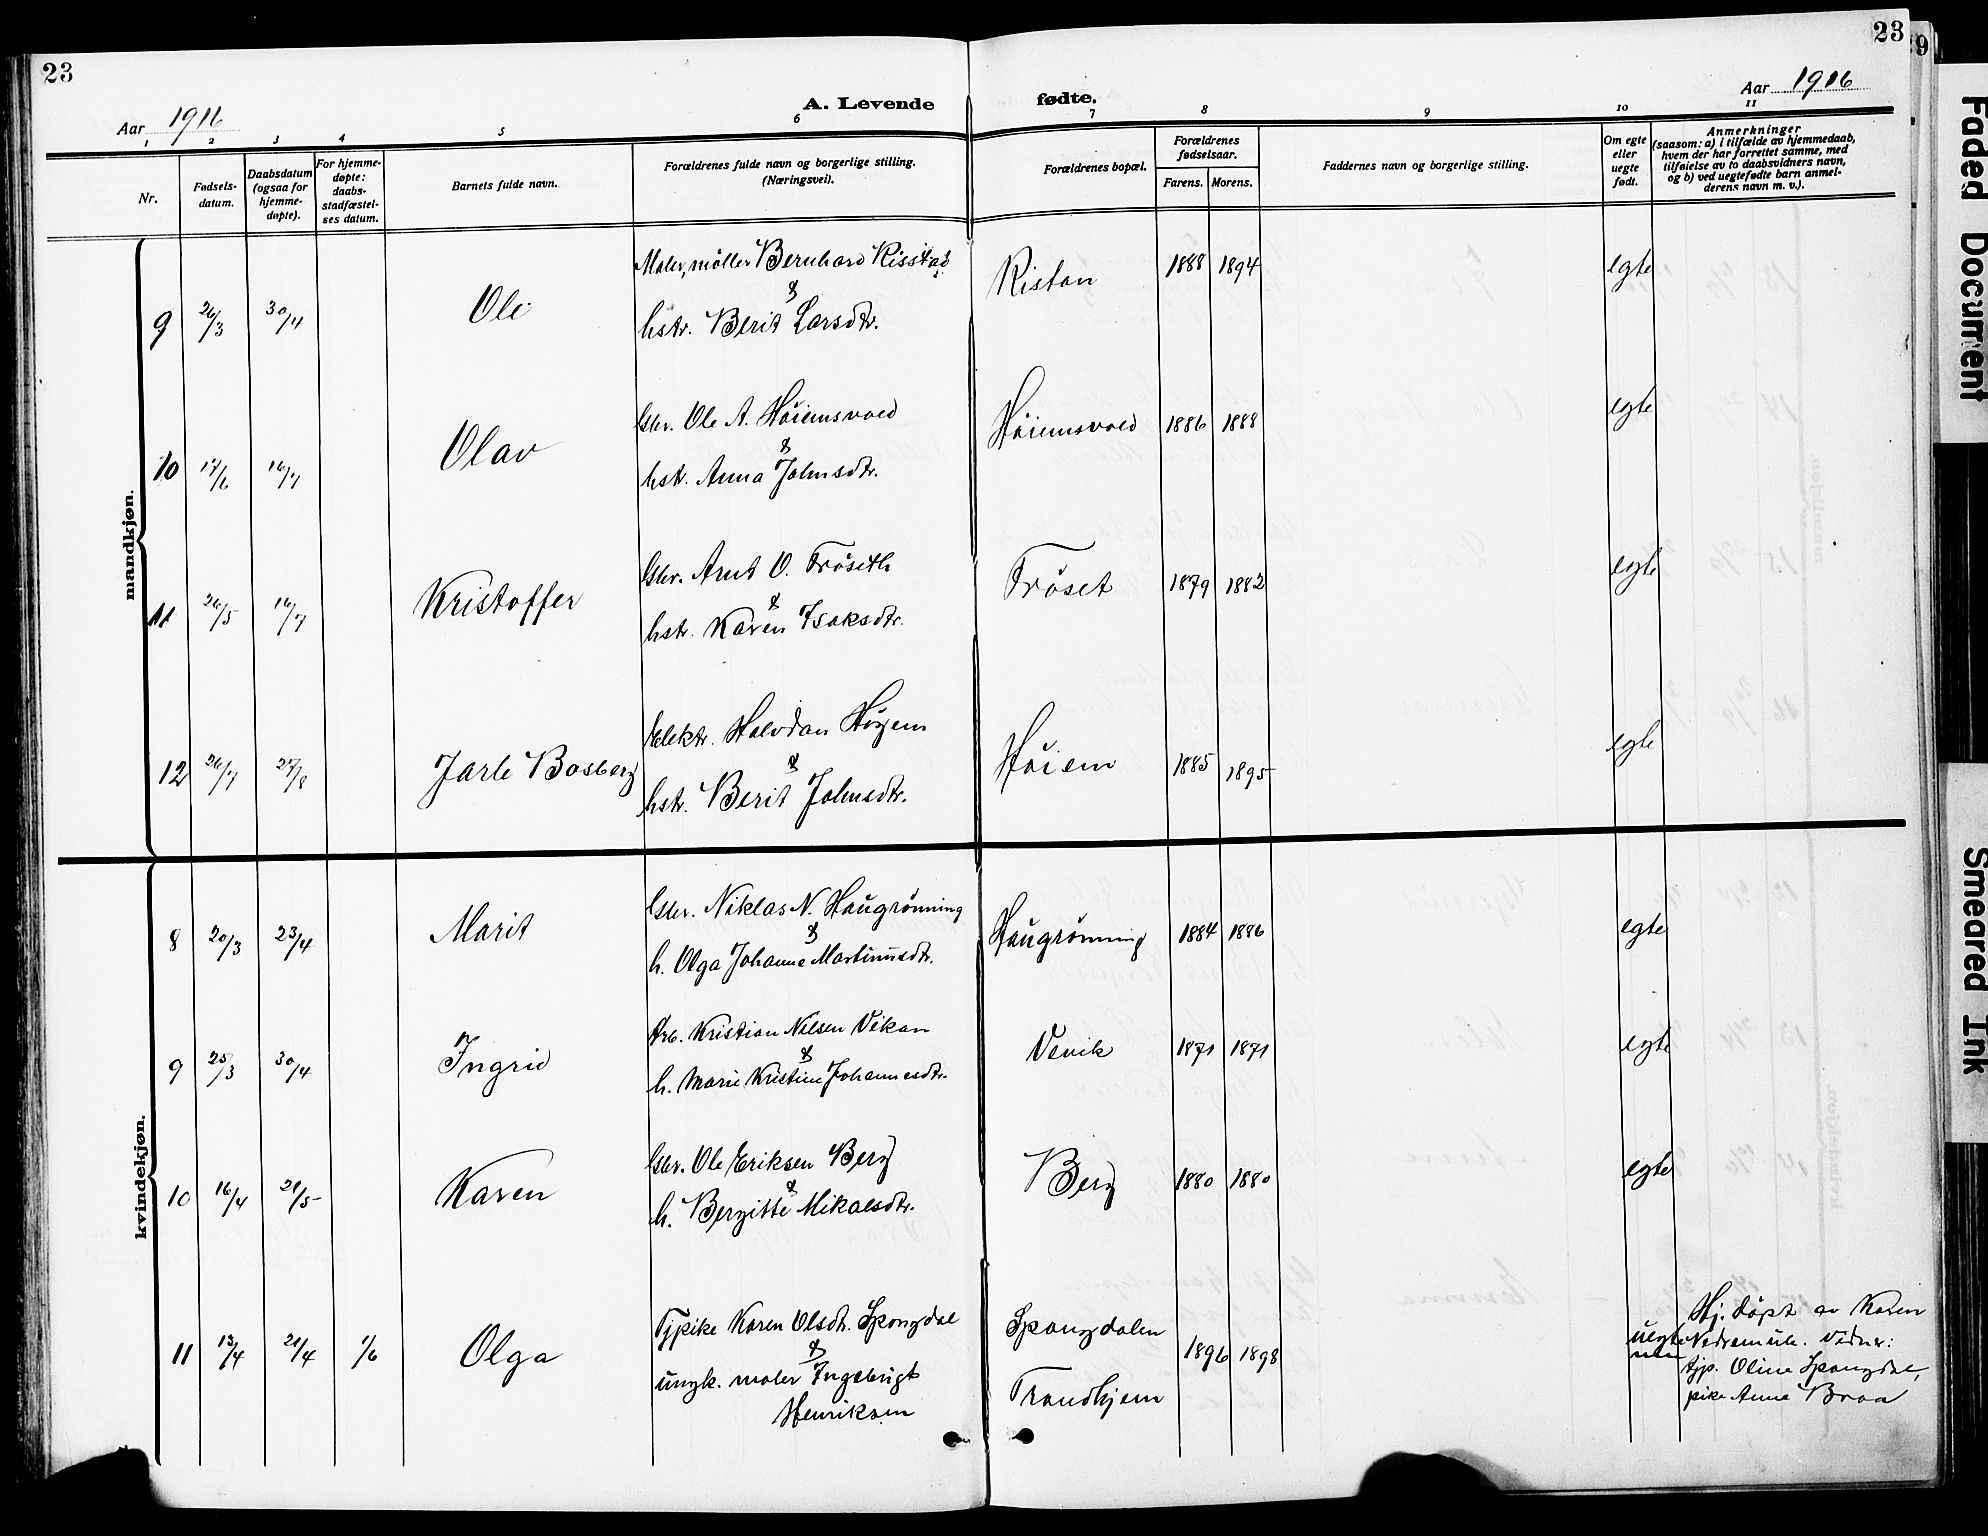 23
23
Aar 1916
A. Levende fødte.
Aar 1916
1 2 3 4 5 6 7 8 9 10 11
Nr.
Fødsels-
datum.
Daabsdatum
(ogsaa for
hjemme-
døpte).
For hjemme-
døpte:
daabs-
stadfæstel-
ses datum.
Barnets fulde navn.
Forældrenes fulde navn og borgerlige stilling.
(Næringsvei).
Forældrenes bopæl.
Forældrenes
fødselsaar.
Farens. Morens.
Faddernes navn og borgerlige stilling.
Om egte
eller
uegte
født.
Anmerkninger
(saasom: a) i tilfælde av hjemmedaab,
hvem der har forrettet samme, med
tilføielse av to daabsvidners navn,
og b) ved uegtefødte barn anmel-
derens navn m. v.).
mandkjøn.
9 26/3 30/4 Ole
Maler, møller Bernhard Risstad
&
hstr. Berit Larsdtr.
Ristan 1888 1894 egte
10 17/6 16/7 Olav
Gbr. Ole A. Høiemsvold
&
hstr. Anna Johnsdtr.
Høiemsvold 1886 1888 egte
11 26/5 16/7 Kristoffer
Gbr. Arnt O. Frøseth
&
hstr. Karen Isaksdtr.
Frøset 1879 1882 egte
12 26/7 27/8 Jarle Bosberg
Elektr. Halvdan Høyem
&
hstr. Berit Johnsdtr.
Høiem 1885 1895 egte
kvindekjøn.
8 20/3 23/4 Marit
Gbr. Niklas N. Haugrønning
&
h. Olga Johanne Martinusdtr.
Haugrønning 1884 1886 egte
9 25/3 30/4 Ingrid
Arb. Kristian Nilsen Vikan
&
h. Marie Kristine Johannesdtr.
Devik 1871 1871 egte
10 16/4 21/5 Karen
Gbr. Ole Eriksen Berg
&
h. Bergitte Mikalsdtr.
Berg 1880 1880 egte
11 12/4 21/4 1/6 Olga
Tjpike Karen Olsdtr. Spongdal
&
ungk. maler Ingebrigt
Henriksen
Spongdalen
Trondhjem
1896 1898 uegte
Hj. døpt av Karen
Nedremule. Vidner:
tjp. Oline Spongdal,
pike Anna Braa
Faded Document
Smeared Ink